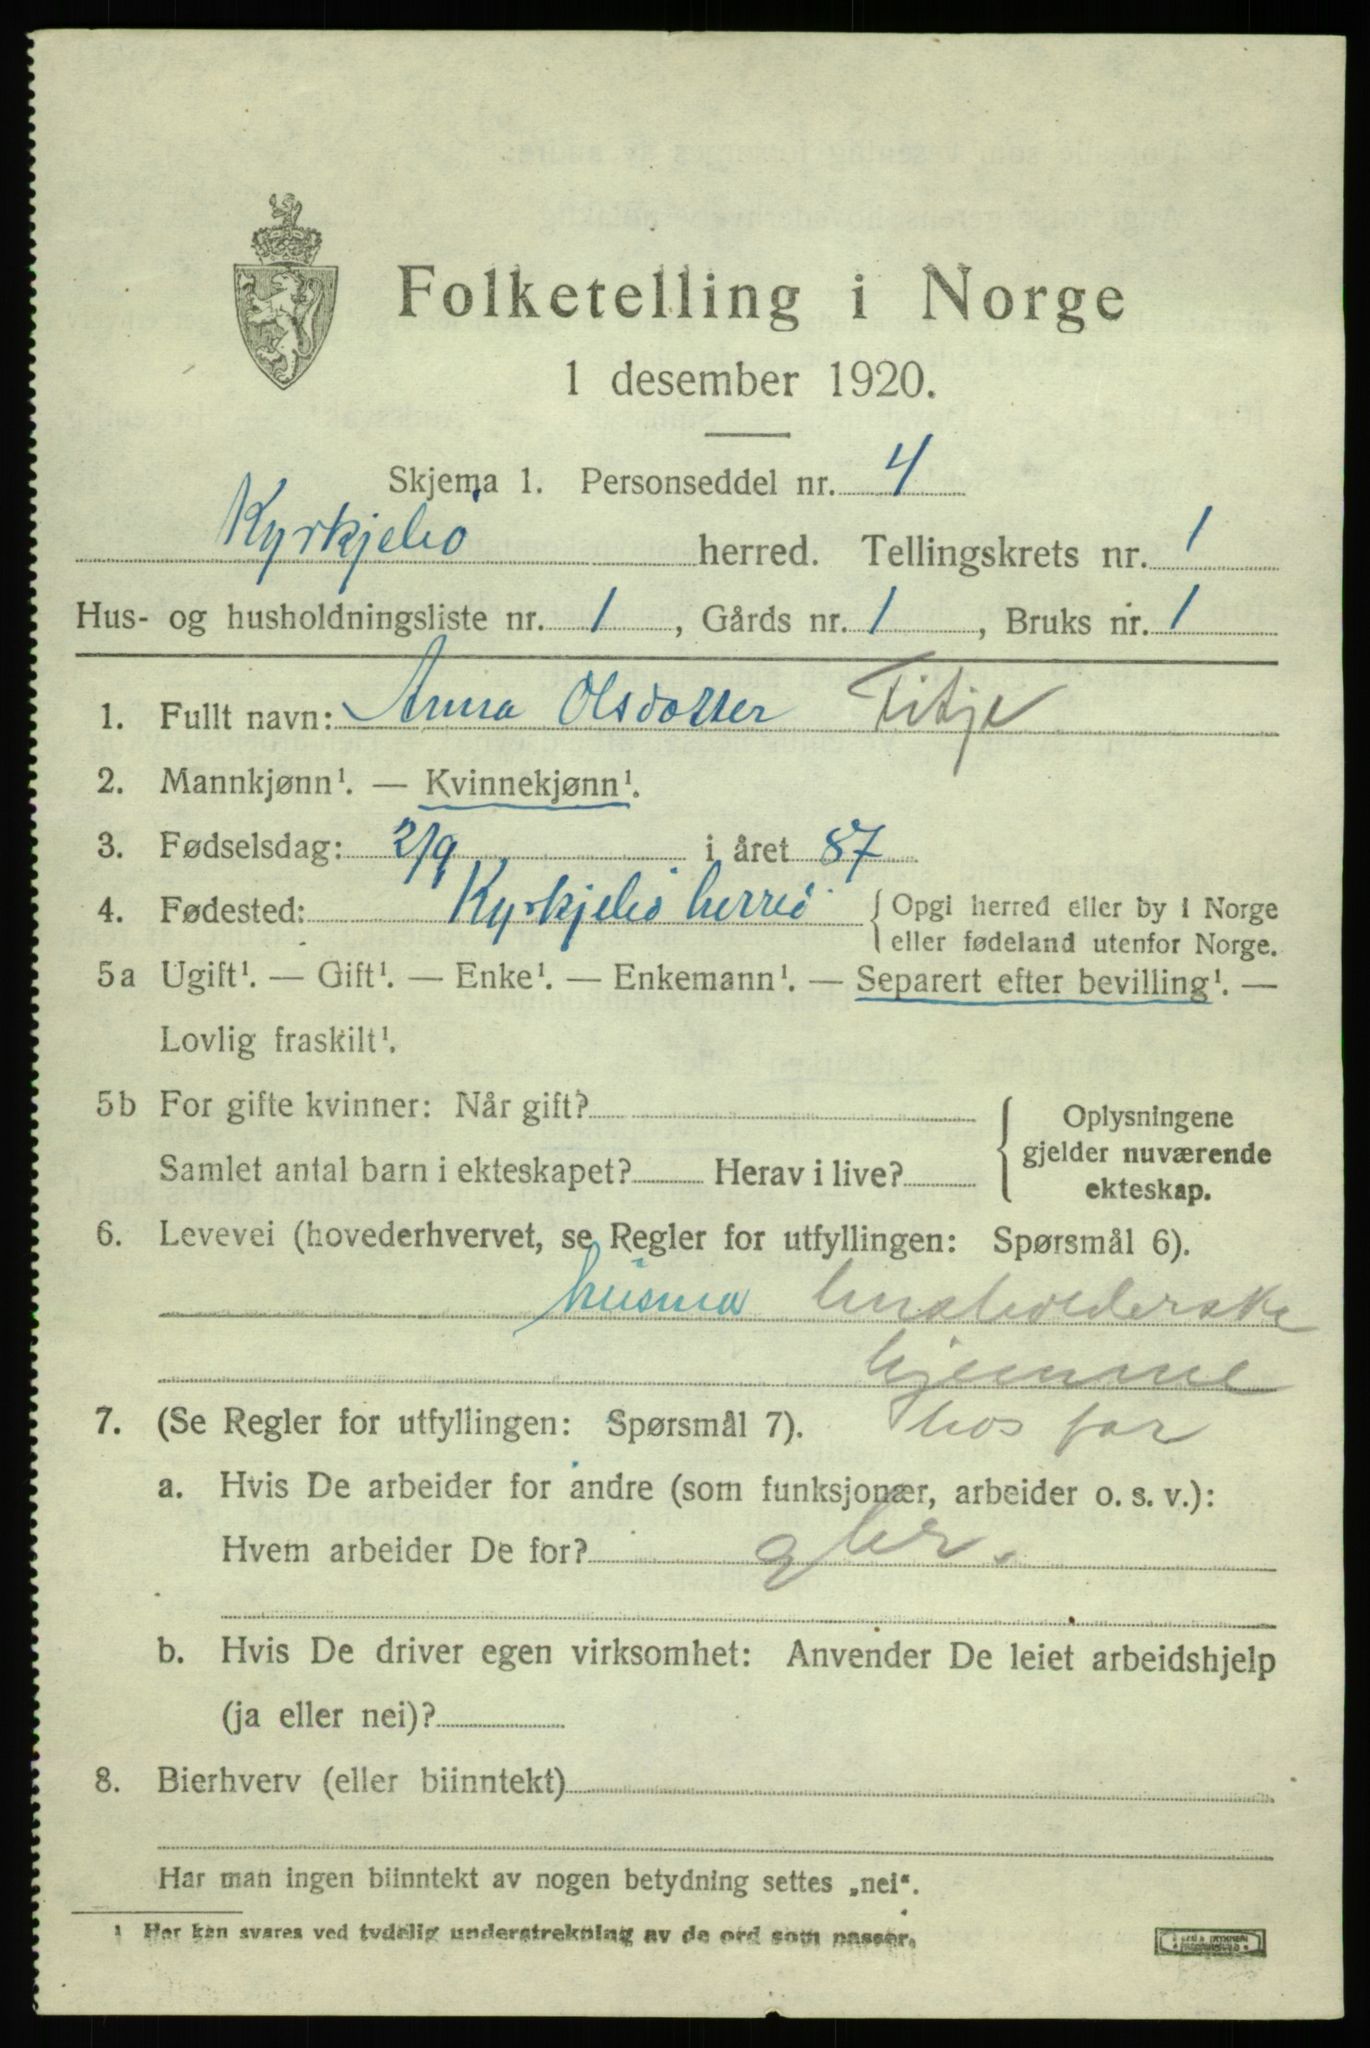 Folketelling i Norge
1 desember 1920.
Skjema 1. Personseddel nr. 4
Kyrkjebø herred. Tellingskrets nr. 1
Hus- og husholdningsliste nr. 1, Gårds nr. 1, Bruks nr. 1
1. Fullt navn: Anna Olsdotter Titje
2. Mannkjønn¹. — Kvinnekjønn¹.
3. Fødselsdag: 2/9 i året 87
4. Fødested: Kyrkjebø herred { Opgi herred eller by i Norge
eller fødeland utenfor Norge.
5a Ugift¹. — Gift¹. — Enke¹. — Enkemann¹. — Separert efter bevilling¹. —
Lovlig fraskilt¹.
5b For gifte kvinner: Når gift?
Samlet antal barn i ekteskapet? Herav i live?
{ Oplysningene
gjelder nuværende
ekteskap.
6. Levevei (hovederhvervet, se Regler for utfyllingen: Spørsmål 6).
husma husholderske
hjemme
hos far
7. (Se Regler for utfyllingen: Spørsmål 7).
a. Hvis De arbeider for andre (som funksjonær, arbeider o. s. v.):
Hvem arbeider De for? gbr.
b. Hvis De driver egen virksomhet: Anvender De leiet arbeidshjelp
(ja eller nei)?
8. Bierhverv (eller biinntekt)
Har man ingen biinntekt av nogen betydning settes „nei“.
¹ Her kan svares ved tydelig understrekning av de ord som passer.